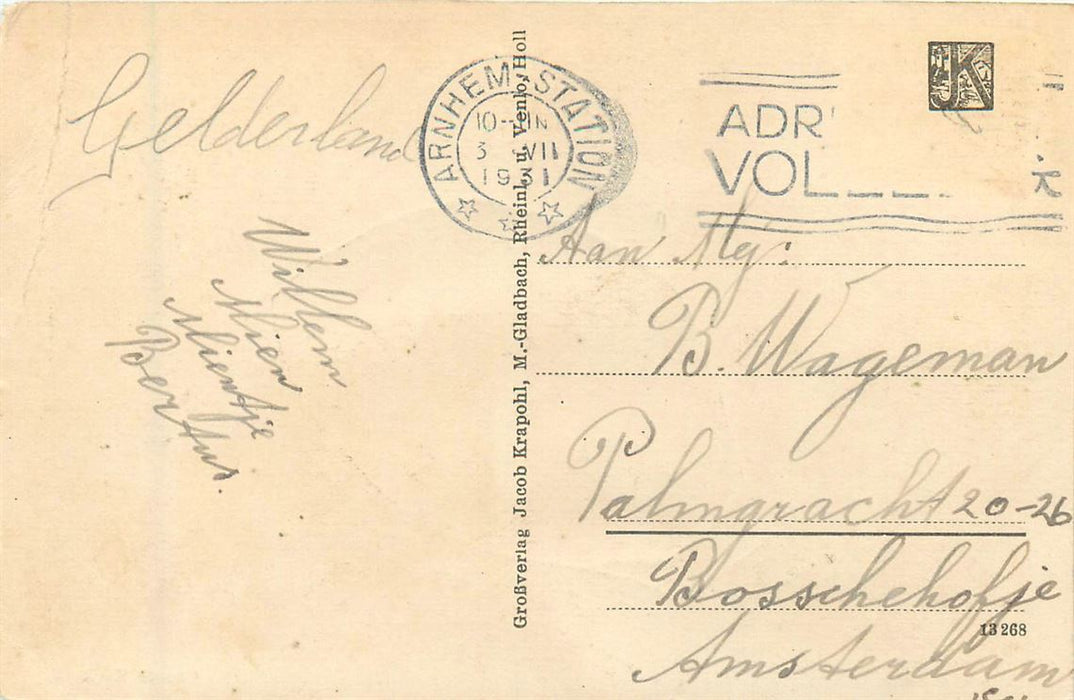 Gelderland
Willem
Mien
Mientje
Bertus.
Großverlag Jacob Krapohl, M.-Gladbach, Rheinl. u. Venlo, Holl
ARNHEM-STATION
10-
3 VII
1931
ADR
VOL
K
Aan Mej:
B. Wageman
Palmgracht 20-26
Bosschehofje
13268
Amsterdam